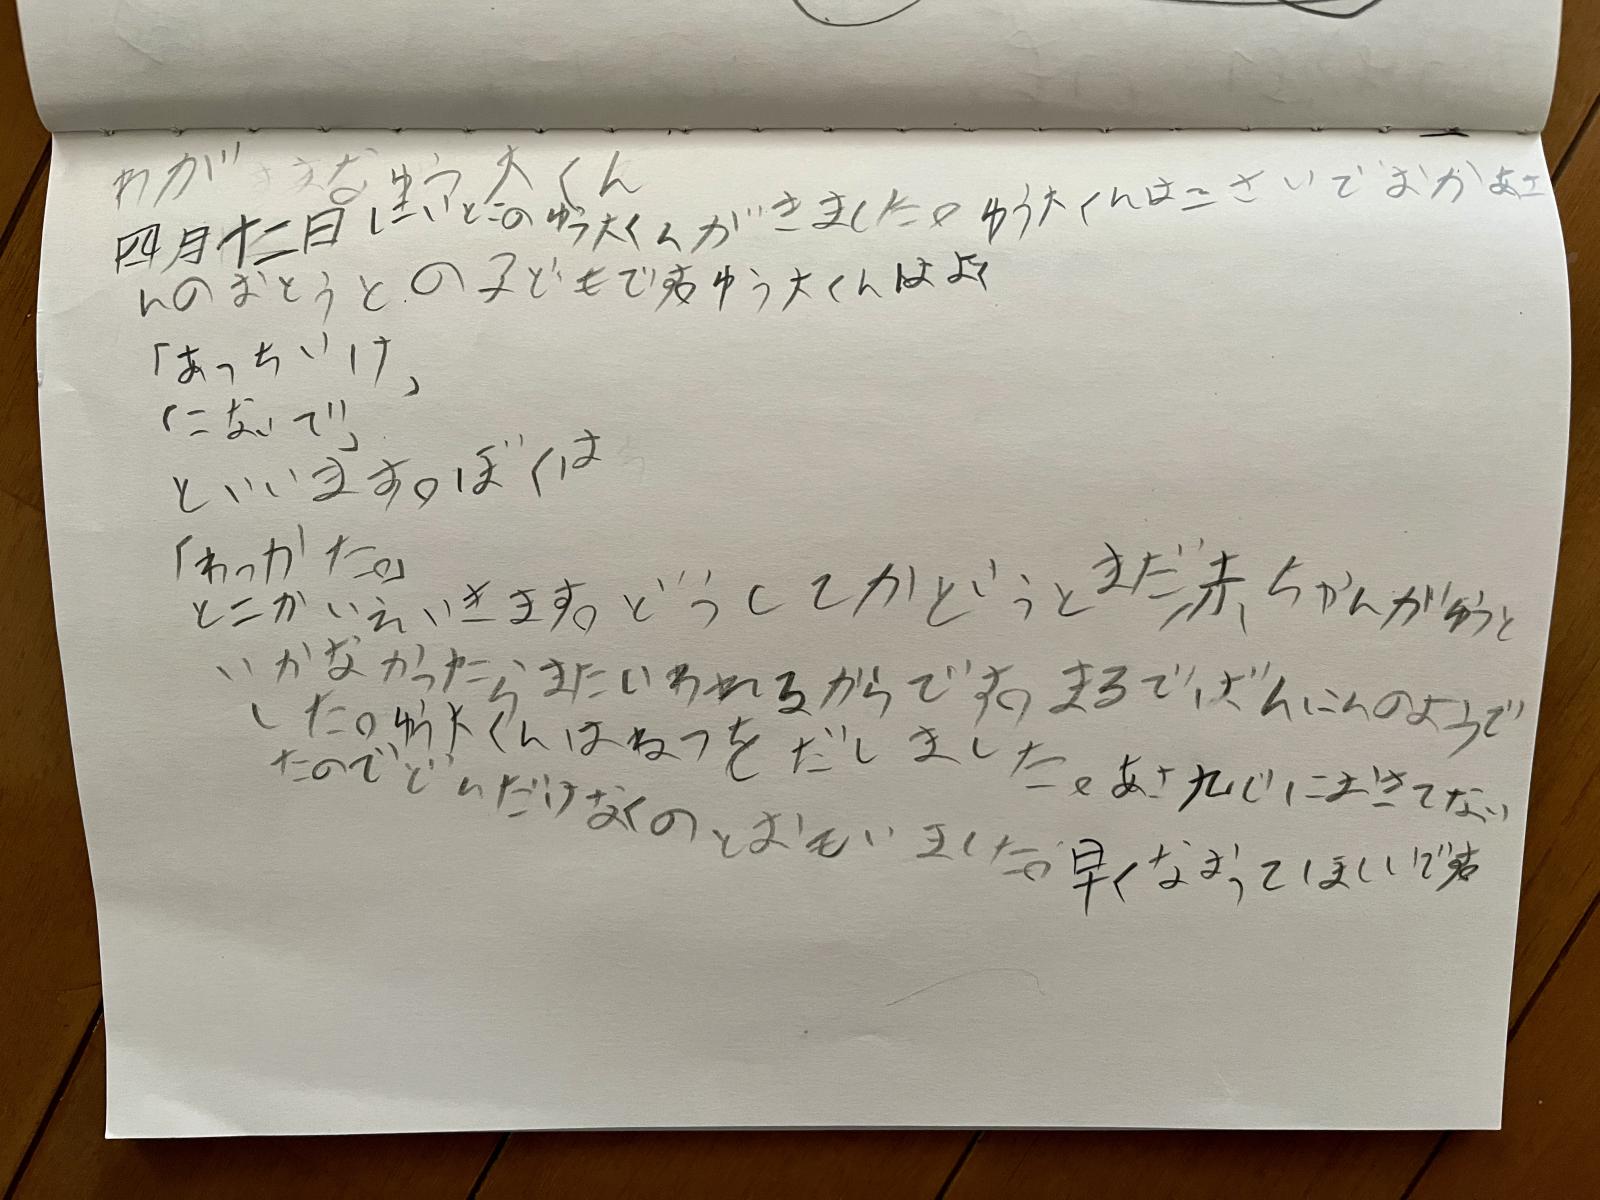 わがままなゆう大くん
四月十二日にいとこのゆう大くんがきました。ゆう大くんは二さいでおかあさ
んのおとうとの子どもです。ゆう大くんはよく
「あっちいけ」
「こないで」
といいます。ぼくは
「わっかた。」
とこかいえいきます。どうしてかどいうとまだ赤ちゃんがゆうと
いかなかったらまたいわれるからです。まるでばんにんのようで
した。ゆう大くんはねつをだしました。あさ九じにおきてない
たのでどんだけなくのとおもいました。早くなおってほしいです